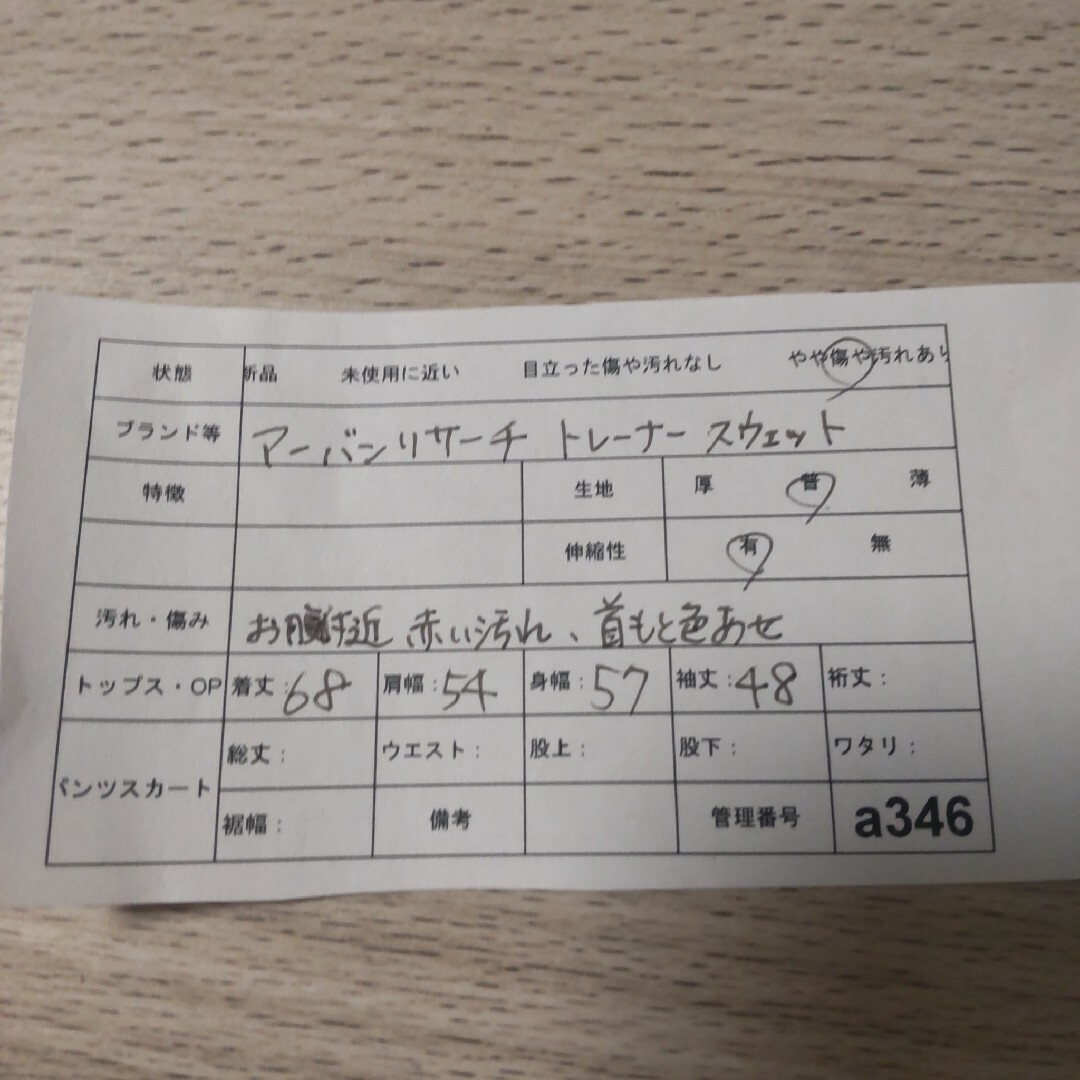 状態 新品 未使用に近い 目立った傷や汚れなし やや傷や汚れあり
ブランド等 アーバンリサーチ トレーナー スウェット
特徴 生地 厚 普 薄
伸縮性 有 無
汚れ・傷み お腹付近 赤い汚れ、首もと色あせ
トップス・OP 着丈:68 肩幅:54 身幅:57 袖丈:48 裄丈:
パンツスカート 総丈: ウエスト: 股上: 股下: ワタリ:
裾幅: 備考 管理番号 a346